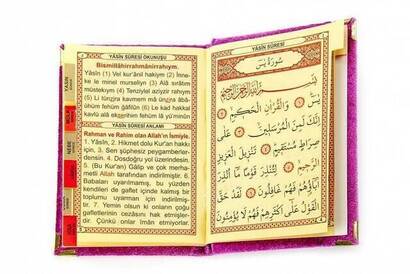 YÂSÎN SÛRESİ OKUNUŞU
Bismillâhirrahmânirrahıym.
Yâsîn (1) Vel kur'ânil hakiym (2) İnne-
ke le minel murseliyn (3) Alâ sırâtın
mustekiym (4) Tenziylel aziyzir rahıym
(5) Li tünzira kavmem mâ ünzira âbâ-
ühüm fehüm ğâfilûn (6) Le kad hakkal
kavlü alâ ekserihim fehüm lâ yü'minûn
YÂSÎN SÛRESİ ANLAMI
Rahman ve Rahim olan Allah'ın İsmiyle.
1. Yâsîn, 2. Hikmet dolu Kur'an hakkı
için, 3. Sen şüphesiz peygamberler-
densin. 4. Dosdoğru yol üzerindesin.
5. (Bu Kur'an) Gâlip ve çok merha-
metli Allah tarafından indirilmiştir. 6.
Babaları uyarılmamış, bu yüzden
kendileri de gaflet içinde kalmış bir
toplumu uyarman için indirilmiştir.
7. Yemin olsun ki onların çoğu
gafletlerinin cezasını hak etmişler-
dir. Çünkü onlar îman etmiyorlar.
YASİN
MÜLK
NEBE
YÂSÎN SÛRESİ
سورة يس
بسم الله الرحمن الرحيم
يس ﴿١﴾ والقرآن الحكيم ﴿٢﴾
إنك لمن المرسلين ﴿٣﴾ على
صراط مستقيم ﴿٤﴾ تنزيل العزيز
الرحيم ﴿٥﴾ لتنذر قوما ما أنذر
آباؤهم فهم غافلون ﴿٦﴾ لقد حق
القول على أكثرهم فهم لا يؤمنون